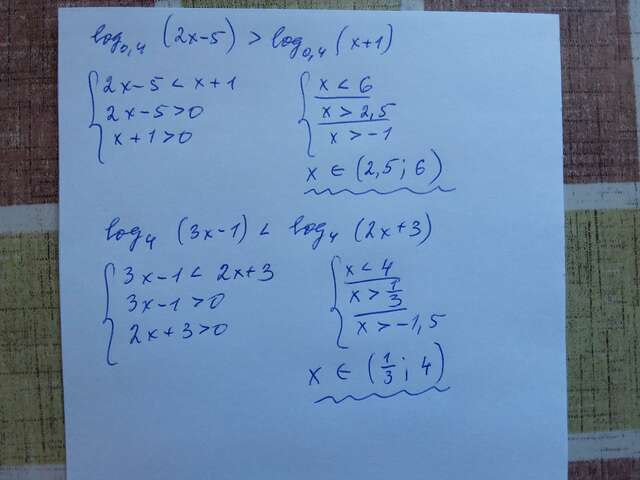 log₀,₄ (2x-5) > log₀,₄ (x+1)
2x-5 < x+1
2x-5>0
x+1>0
x < 6
x > 2,5
x > -1
x ∈ (2,5 ; 6)
log₄ (3x-1) < log₄ (2x+3)
3x-1 < 2x+3
3x-1 >0
2x+3>0
x < 4
x > 1/3
x > -1,5
x ∈ (1/3 ; 4)